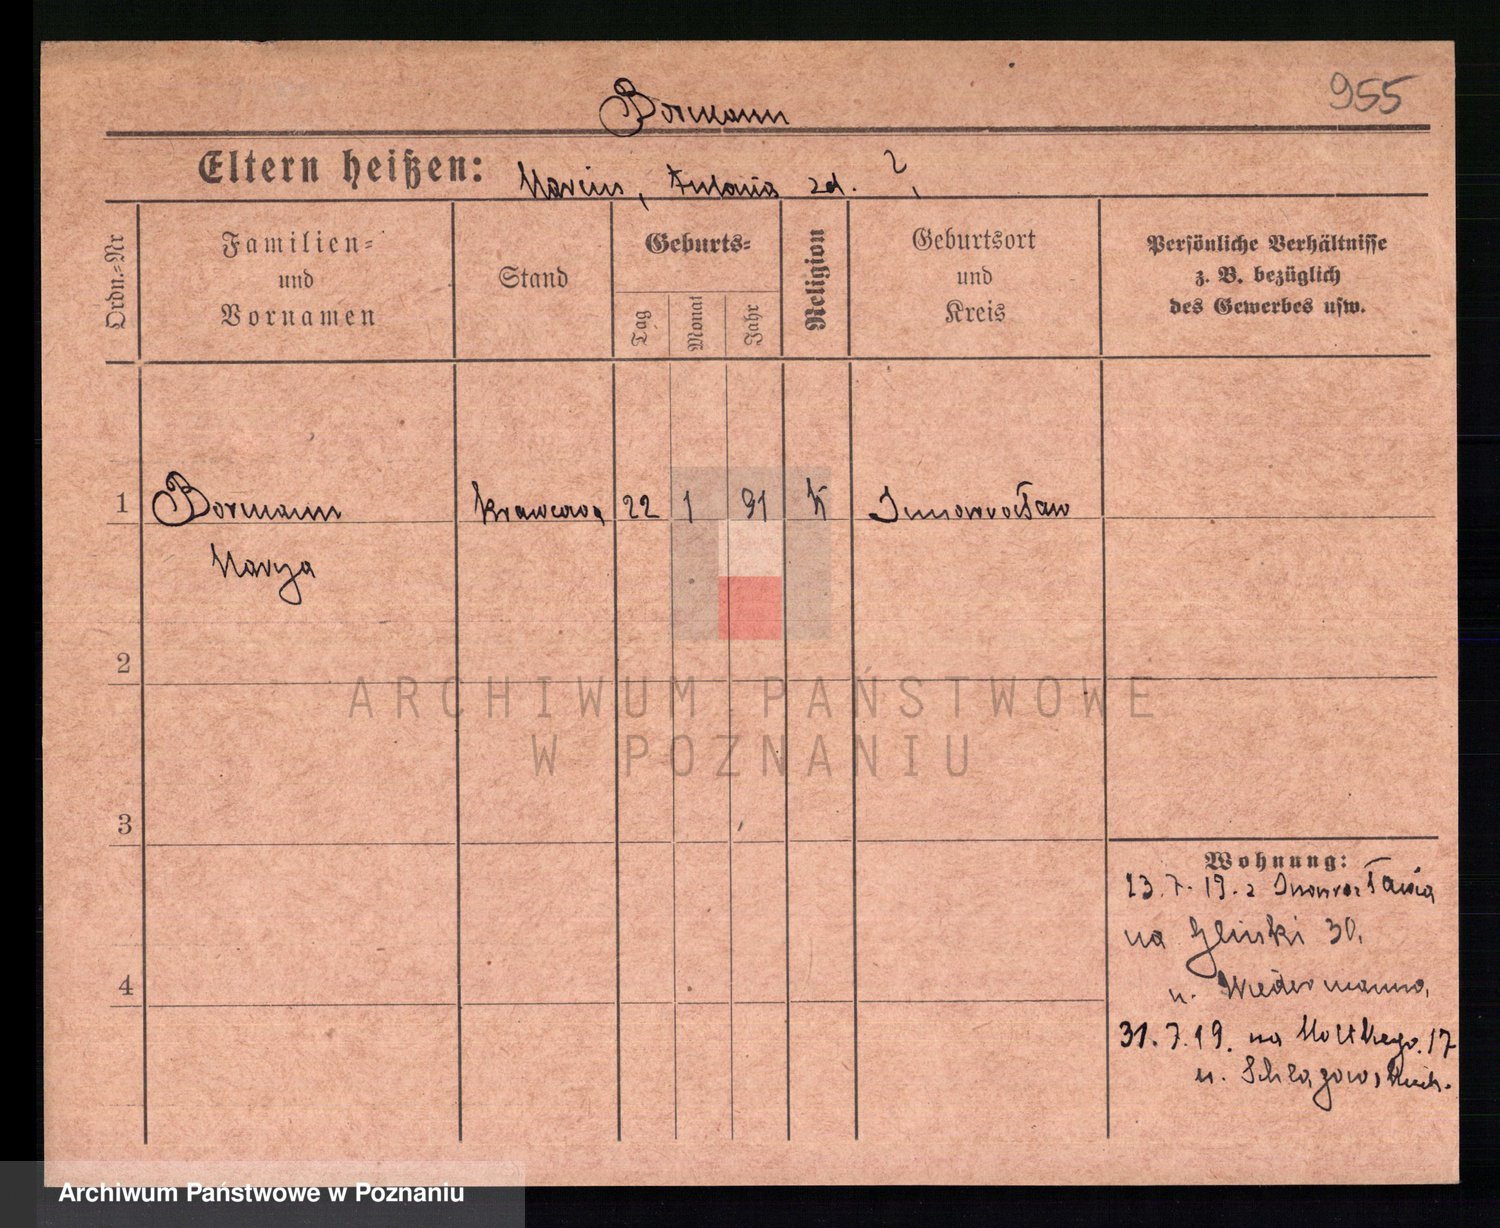 955
Bormann
Eltern heißen: Marcin, Antonia zd. ?
Ordn.=Nr
Familien=
und
Vornamen
Stand
Geburts=
Tag
Monat
Jahr
Religion
Geburtsort
und
Kreis
Persönliche Verhältnisse
z. B. bezüglich
des Gewerbes usw.
1 Bormann krawcowa 22 1 91 K Inowrocław
Marya
2
ARCHIWUM PAŃSTWOWE
W POZNANIU
3
Wohnung:
23.7.19. z Inowrocławia
na Gliński 30.
u. Wiedermanna,
4
31.7.19. na Moltkego. 17
u.
Archiwum Państwowe w Poznaniu